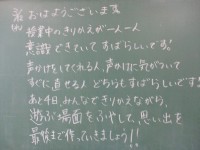 おはようございます
授業中のきりかえが一人一人
意識できていてすばらしいです。
声かけをしてくれる人、声かけに気がついて
すぐに直せる人どちらもすばらしいです!!
あと4日、みんなできりかえながら、
遊ぶ場面をふやして、思い出を
最後まで作っていきましょう!!